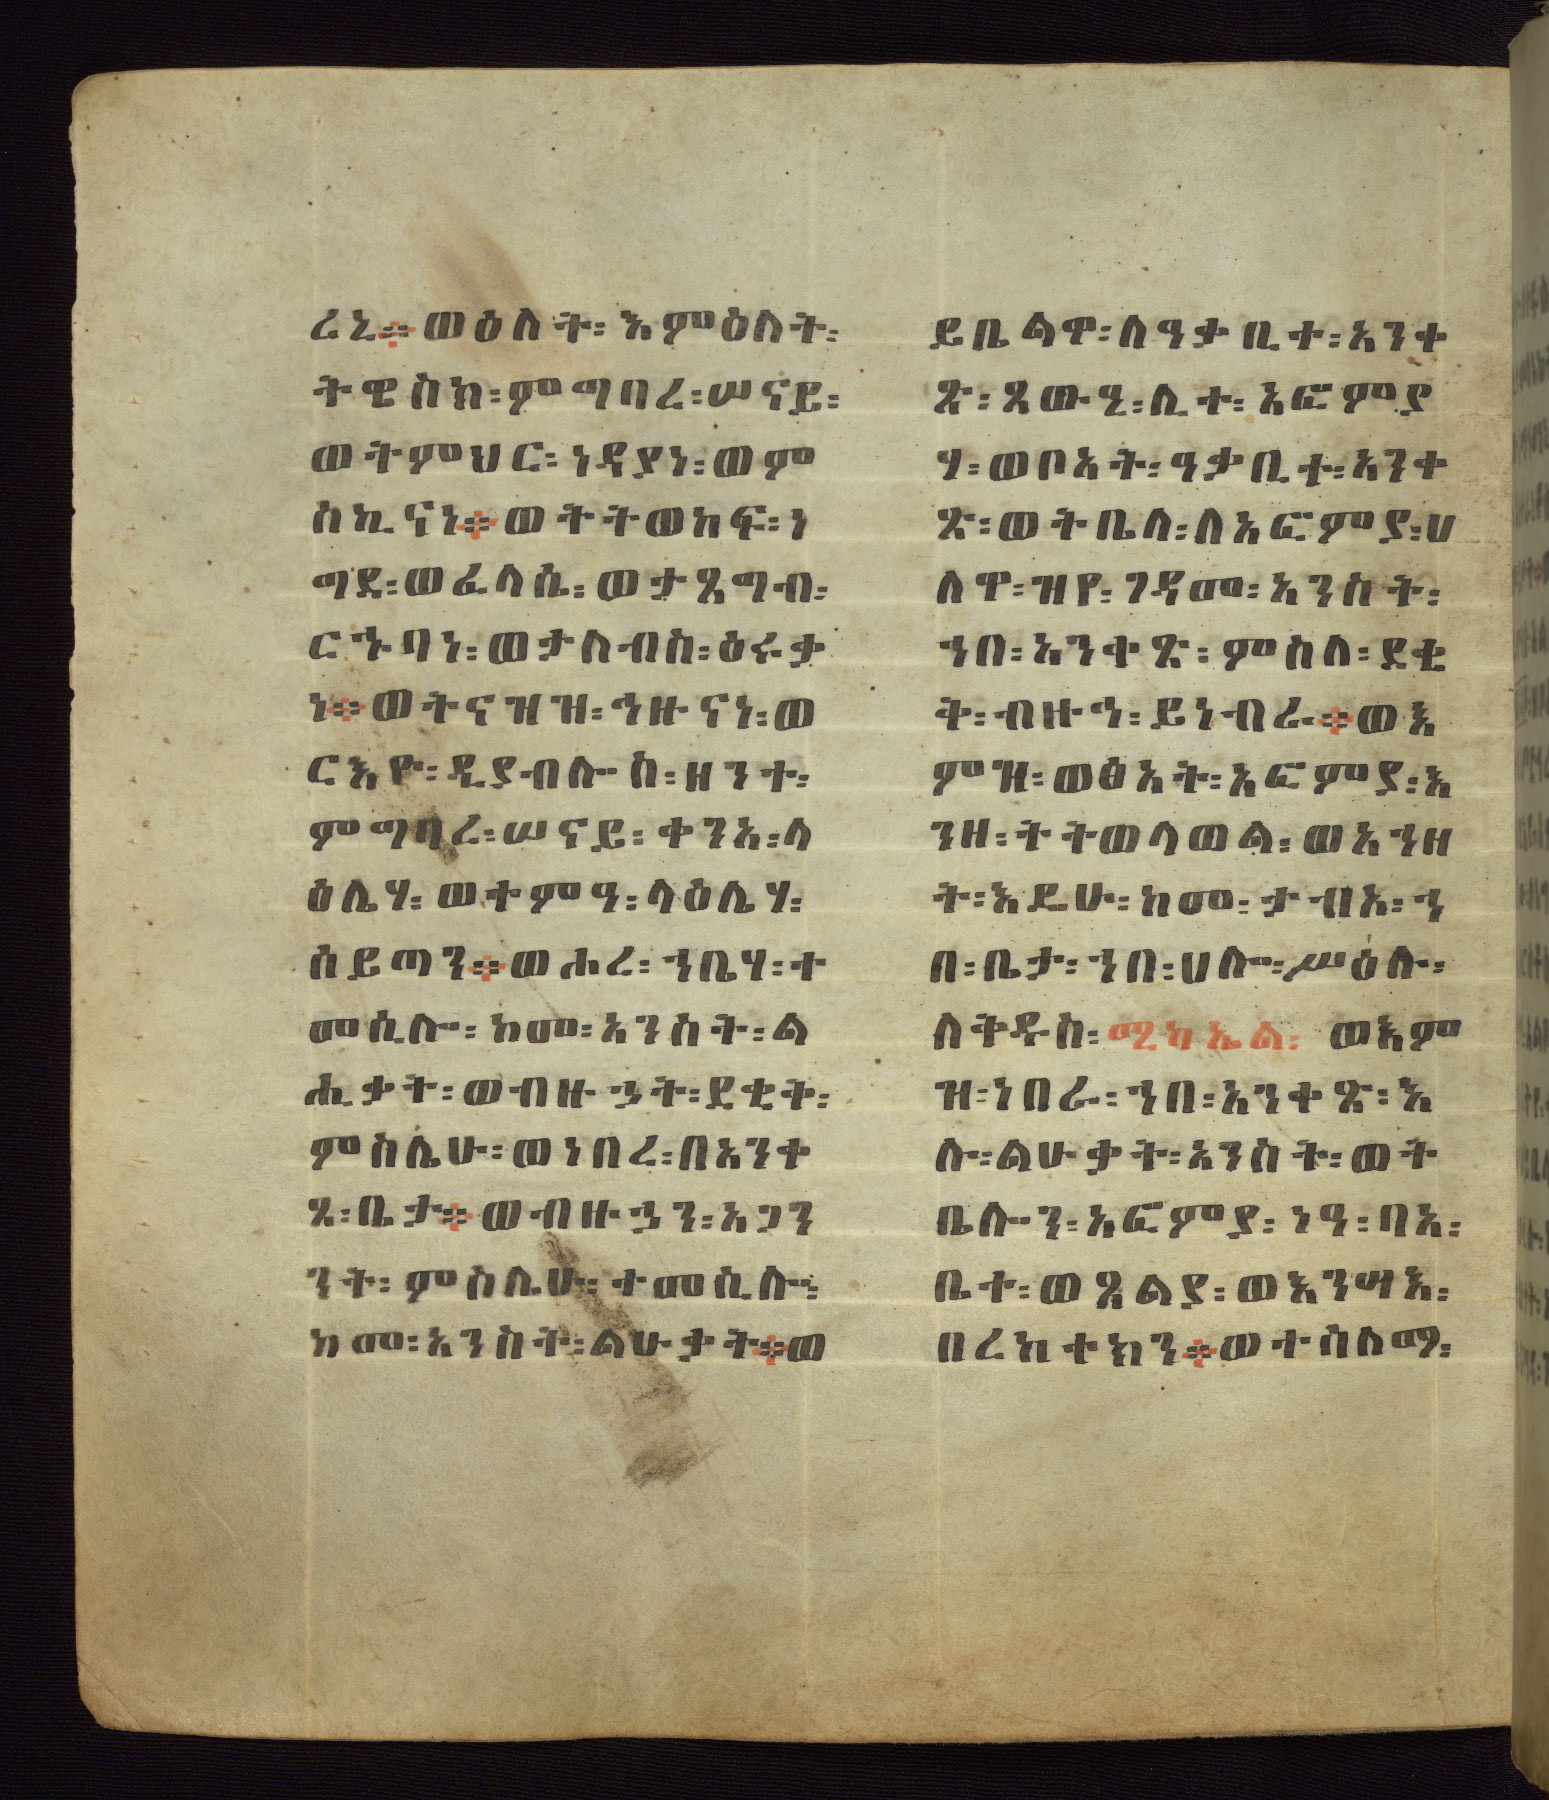 ራኒ። ወዕለት፡ እምዕለት፡
ትዌስክ፡ ምግባረ፡ ሠናይ፡
ወትምህር፡ ነዳያነ፡ ወም
ስኪናነ። ወትትወከፍ፡ ነ
ግደ፡ ወፈላሴ፡ ወታጸግብ፡
ርኁባነ፡ ወታለብስ፡ ዕሩቃ
ነ። ወትናዝዝ፡ ኅዙናነ፡ ወ
ርእዮ፡ ዲያብሎስ፡ ዘንተ፡
ምግባረ፡ ሠናይ፡ ቀንአ፡ ላ
ዕሌሃ፡ ወተምዓ፡ ላዕሌሃ፡
ሰይጣን። ወሐረ፡ ኀቤሃ፡ ተ
መሲሎ፡ ከመ፡ አንስት፡ ል
ሒቃት፡ ወብዙኃት፡ ደቂቅ፡
ምስሌሁ፡ ወነበረ፡ በአንቀ
ጸ፡ ቤታ። ወብዙኃን፡ አጋን
ንት፡ ምስሌሁ፡ ተመሲሎ፡
ከመ፡ አንስት፡ ልሁቃት። ወ
ይቤልዋ፡ ለዓቃቢተ፡ አንቀ
ጽ፡ ጸውዒ፡ ሊተ፡ አፎምያ
ሃ፡ ወቦአት፡ ዓቃቢተ፡ አንቀ
ጽ፡ ወትቤላ፡ ለአፎምያ፡ ሀ
ለዋ፡ ዝየ፡ ገዳመ፡ አንስት፡
ኀበ፡ አንቀጽ፡ ምስለ፡ ደቂ
ቅ፡ ብዙኅ፡ ይነብራ። ወእ
ምዝ፡ ወፅአት፡ አፎምያ፡ እ
ንዘ፡ ትትወላወል፡ ወአኀዘ
ት፡ እዴሁ፡ ከመ፡ ታብእ፡ ኀ
በ፡ ቤታ፡ ኀበ፡ ሀሎ፡ ሥዕሉ፡
ለቅዱስ፡ ሚካኤል፡ ወእም
ዝ፡ ነበራ፡ ኀበ፡ አንቀጽ፡ እ
ሎ፡ ልሁቃት፡ አንስት፡ ወት
ቤሎን፡ አፎምያ፡ ነዓ፡ ባእ፡
ቤተ፡ ወጸልያ፡ ወእንሣእ፡
በረከተክን። ወተሰለማ፡